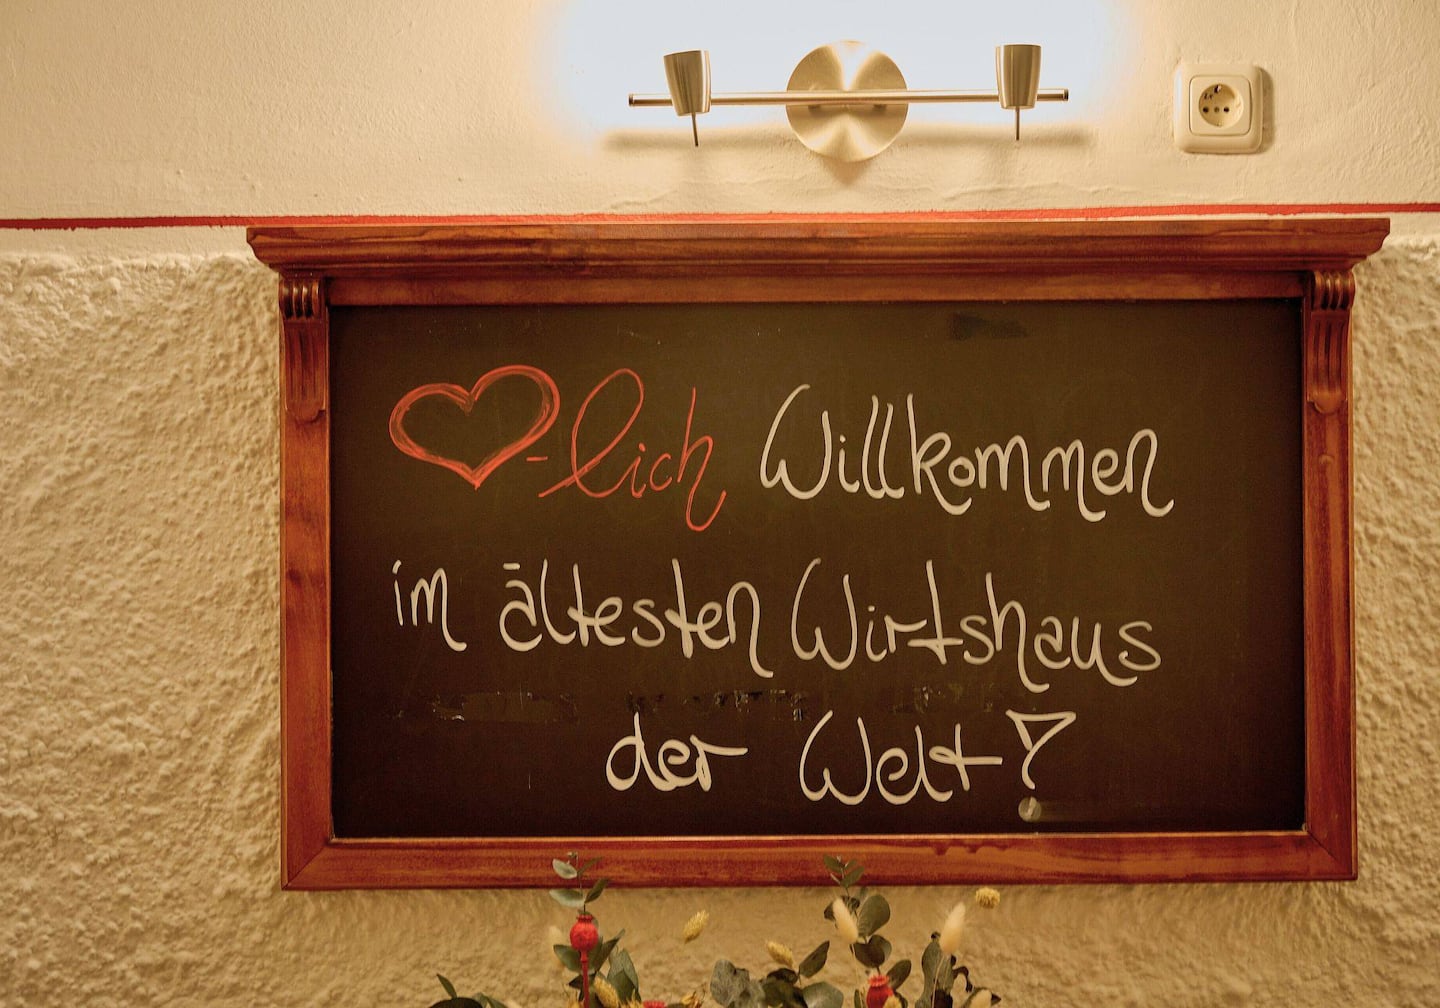 ❤-lich Willkommen
im ältesten Wirtshaus
der Welt!